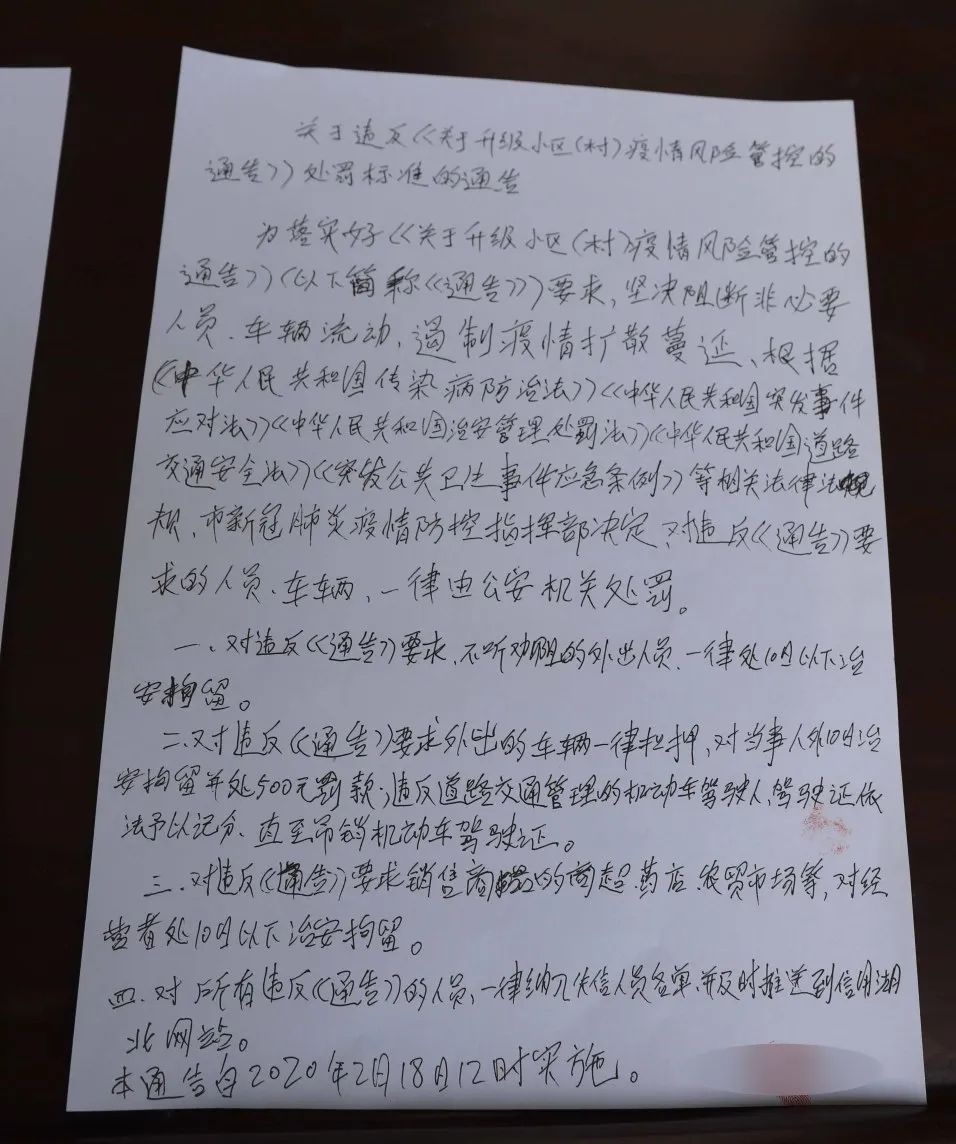 关于违反《《关于升级小区(村)疫情风险管控的
通告》》处罚标准的通告
为落实好《《关于升级小区(村)疫情风险管控的
通告》》(以下简称《《通告》》)要求,坚决阻断非必要
人员、车辆流动,遏制疫情扩散蔓延、根据
《中华人民共和国传染病防治法》》《《中华人民共和国突发事件
应对法》》《《中华人民共和国治安管理处罚法》》《《中华人民共和国道路
交通安全法》》《《突发公共卫生事件应急条例》》等相关法律法
规、市新冠肺炎疫情防控指挥部决定、对违反《《通告》》要
求的人员、车辆、一律由公安机关处罚。
一、对违反《《通告》》要求、不听劝阻的外出人员、一律处10日以下治
安拘留。
二、对违反《《通告》》要求外出的车辆一律扣押,对当事人处10日治
安拘留并处500元罚款;违反道路交通管理的机动车驾驶人、驾驶证依
法予以记分、直至吊销机动车驾驶证。
三、对违反《《通告》》要求销售商品的商超、药店、农贸市场等,对经
营者处10日以下治安拘留。
四、对所有违反《《通告》》的人员、一律纳入失信人员名单、并及时推送到信用湖
北网站。
本通告自2020年2月18日12时实施。